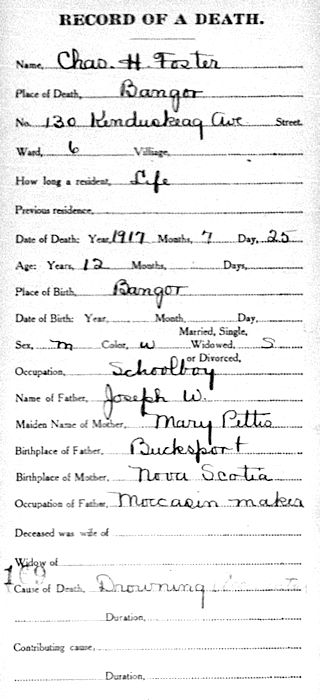 RECORD OF A DEATH.
Name, Chas. H. Foster
Place of Death, Bangor
No. 130 Kenduskeag Ave Street.
Ward, 6 Villiage,
How long a resident, Life
Previous residence,
Date of Death: Year, 1917 Months, 7 Day, 25
Age: Years, 12 Months, Days,
Place of Birth, Bangor
Date of Birth: Year, Month, Day,
Married, Single,
Sex, m Color, w Widowed, S
or Divorced,
Occupation, Schoolboy
Name of Father, Joseph W.
Maiden Name of Mother, Mary Pettis
Birthplace of Father, Bucksport
Birthplace of Mother, Nova Scotia
Occupation of Father, Moccasin maker
Deceased was wife of
Widow of
Cause of Death, Drowning
Duration,
Contributing cause,
Duration,